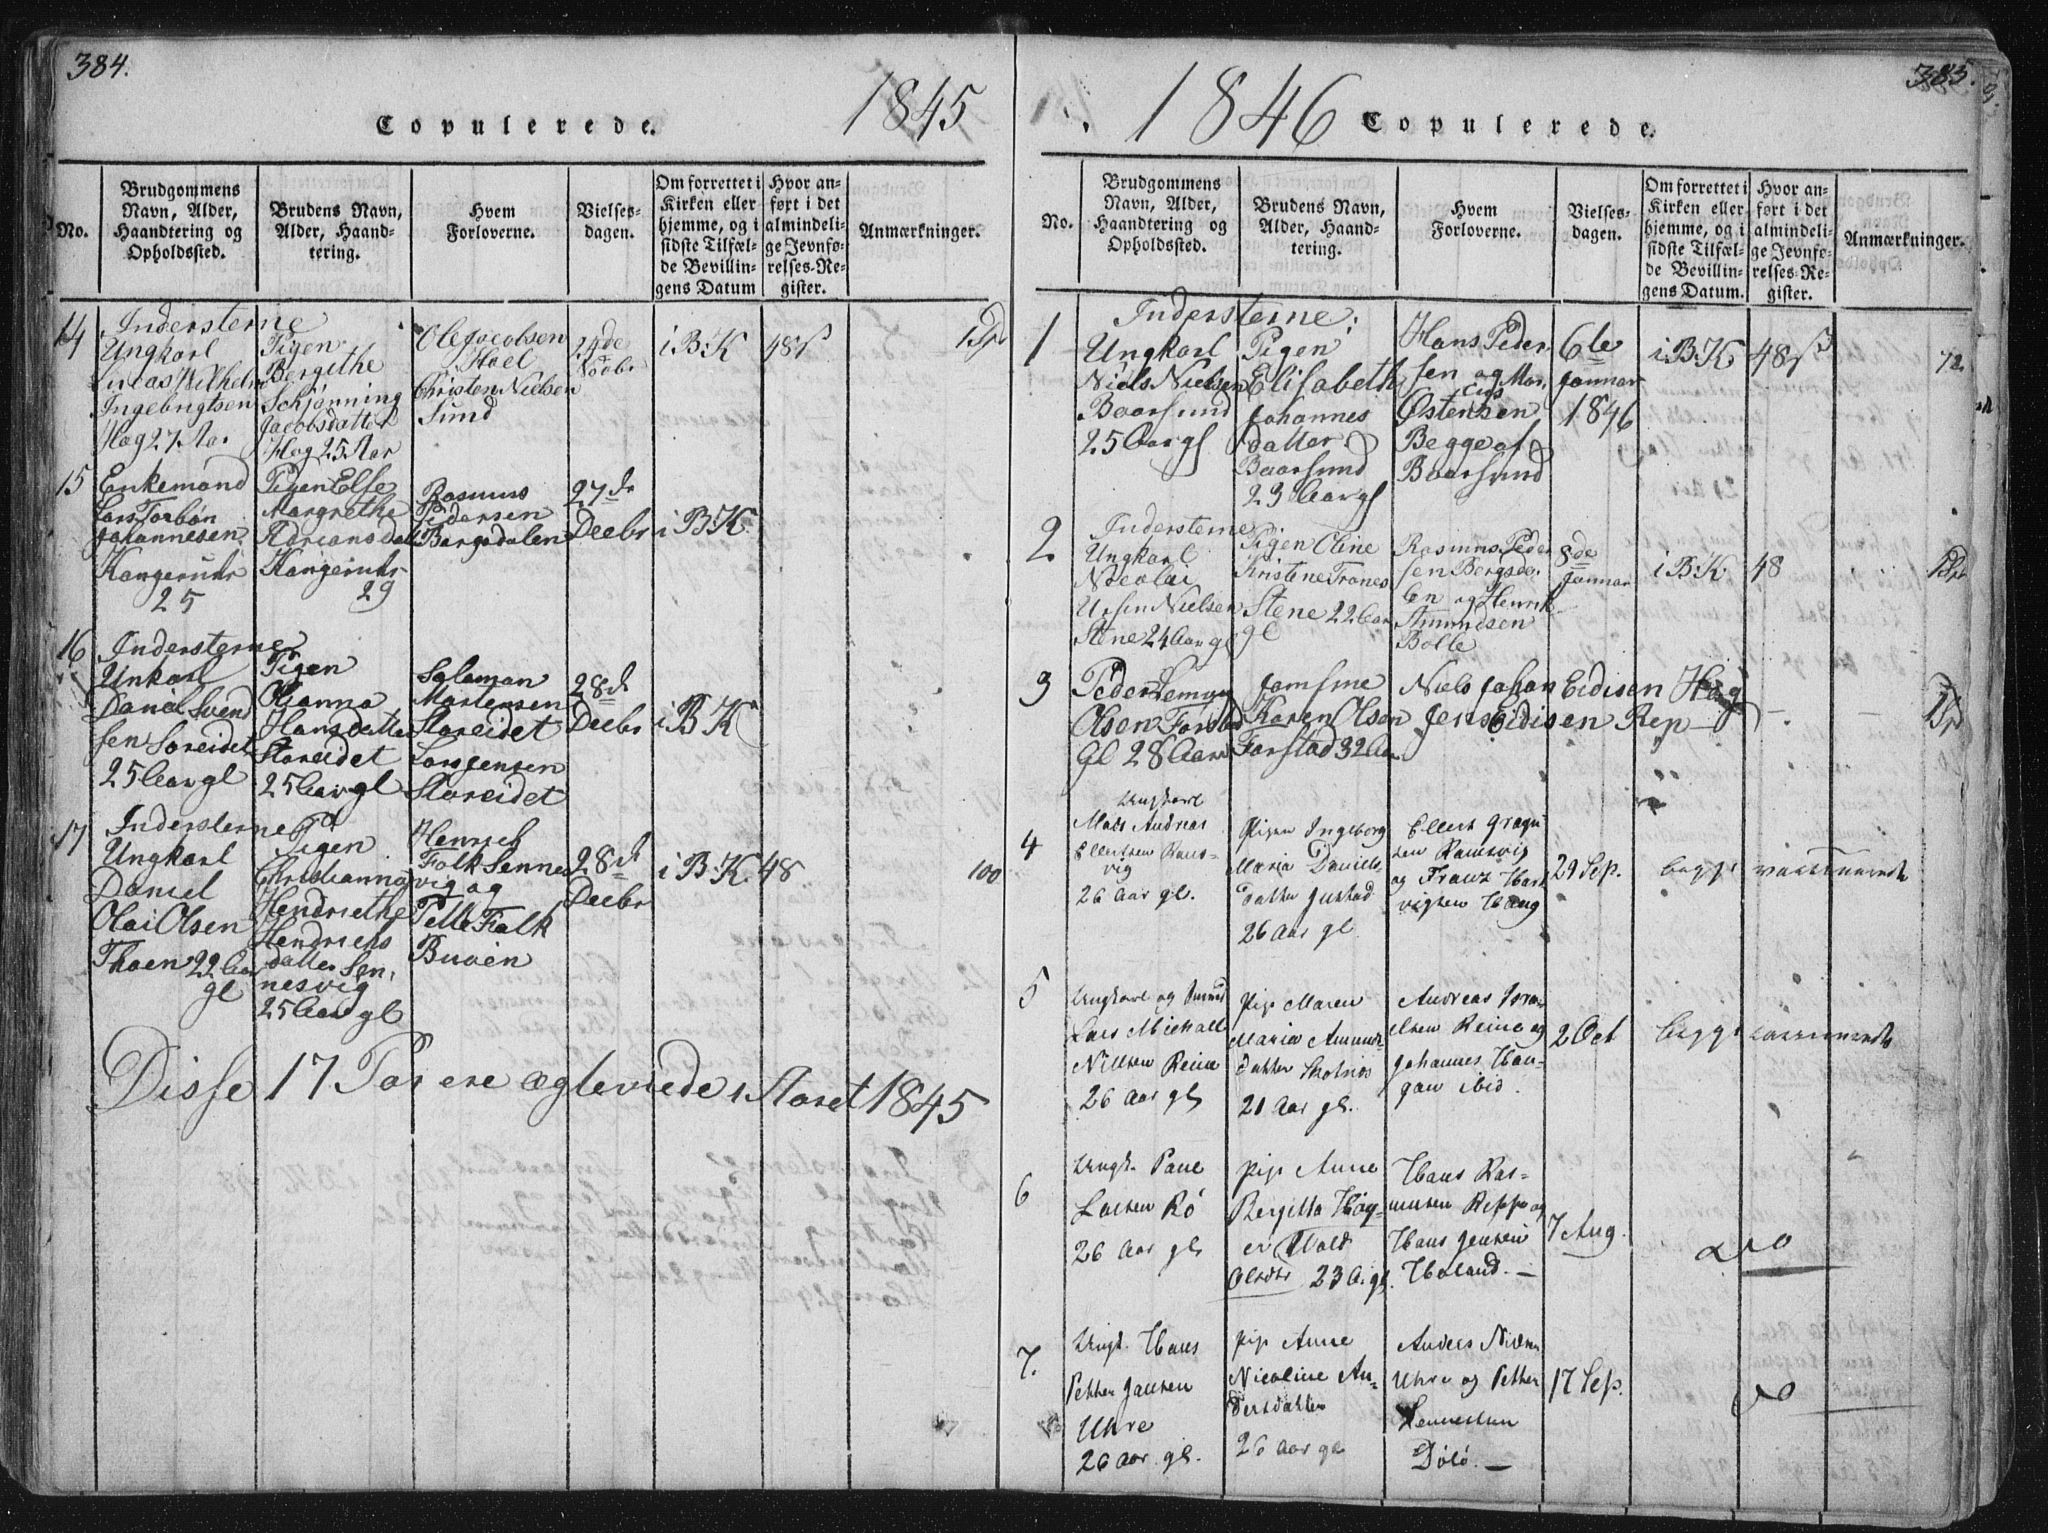 384.
Copulerede.
1845
No.
Brudgommens
Navn, Alder,
Haandtering og
Opholdssted.
Brudens Navn,
Alder, Haand-
tering.
Hvem
Forloverne.
Vielses-
dagen.
Om forrettet i
Kirken eller
hjemme, og i
sidste Tilfæl-
de Bevillin-
gens Datum
Hvor an-
ført i det
almindeli-
ge Jevnfø-
relses-Re-
gister.
Anmærkninger.
14
Indersterne
Ungkarl
Lucas Wilhelm
Ingebrigtsen
Hog 27 Aar
Pigen
Bergithe
Schjønning
Jacobsdatter
Hog 25 Aar
Ole Jacobsen
Hoel
Christen Nielsen
Sund
24de
Novbr
i B.K
48
15
Enkemand
Lars Torbøn
Johannesen
25
Pigen Else
Margrethe
29
Rasmus
Pedersen
Bargsdalen
27de
Decbr
i B.K
16
Indersterne
Unkarl
Daniel Svend
sen Soreidet
25 Aar gl
Pigen
Hansdatter
Storeidet
25 Aar gl
Salamon
Mortensen
Storeidet
Lars Jensen
Storeidet
28de
Decbr
i B.K
17
Indersterne
Ungkarl
Daniel
Olai Olsen
Thoen 22 Aar
gl
Pigen
Christianna
Hendriethe
Hendrichs
datter Sen-
nesvig
25 Aar gl
Henrich
Falk Sennes
vig og
Pelle Falk
Buøen
28de
Decbr
i B.K.
48
100
Disse 17 Par ere ægteviede i Aaret 1845
385.
1846
Copulerede.
No.
Brudgommens
Navn, Alder,
Haandtering og
Opholdssted.
Brudens Navn,
Alder, Haand-
tering.
Hvem
Forloverne.
Vielses-
dagen.
Om forrettet i
Kirken eller
hjemme, og i
sidste Tilfæl-
de Bevillin-
gens Datum.
Hvor an-
ført i det
almindeli-
ge Jevnfø-
relses-Re-
gister.
Anmærkninger.
1
Indersterne
Ungkarl
Niels Nielsen
Baarsund
25 Aar gl
Pigen
Elisabeth
Johannes
datter
Baarsund
23 Aar gl
Hans Peder
sen og Mar.
Eius
Østensen
Begge af
Baarsund
6te
Januar
1846
i B.K
48
72
2
Indersterne
Ungkarl
Nicolai
Ursin Nielsen
Stene 24 Aar gl
Pigen Oline
Kristene Frones
Stene 22 Aar
gl
Rasmus Peder
sen Bergsda
len og Henrik
Amundsen
Bolle
8de
Januar
i B.K
48
3
Peder
Olsen Farstad
gl 28 Aar
Jamsine
Karen Olsen
Farstad 32 Aar
Niels Johan Eidisen Hag
Jens Eidisen Rep
4
Ungkarl
Mads Andreas
Ellertsen Rams-
vig
26 Aar gl.
Pigen Ingeborg
Maria Daniels-
datter Justad
26 Aar gl
Ellert Gregu
sen Ramsvig
og Frantz Hart
vigsen Haug
29 Sep.
begge vaccinerede
5
Ungkarl og
Lars Michall
Nielsen Reine
26 Aar gl
Pige Maren
Maria Amunds-
datter
21 Aar gl.
Andreas Isra-
elsen Reine og
Johannes Han-
gan ibid.
2 Oct
begge vaccinerede
6
Ungk. Paul
Larsen Rø
26 Aar gl
Pige Anne
Bergitta Hag-
er Wold
Olsdtr 23 A. gl.
Hans Ras-
musen Reppe og
Hans Jensen
Høland. —
7 Aug.
do
7.
Ungk. Hans
Petter Jansen
Uhre
26 Aar gl.
Pige Anne
Nicoline An-
dersdatter
26 Aar gl
Anders Nielsen
Uhre og Petter
Lennertsen
Dølø. —
17 Sep.
do